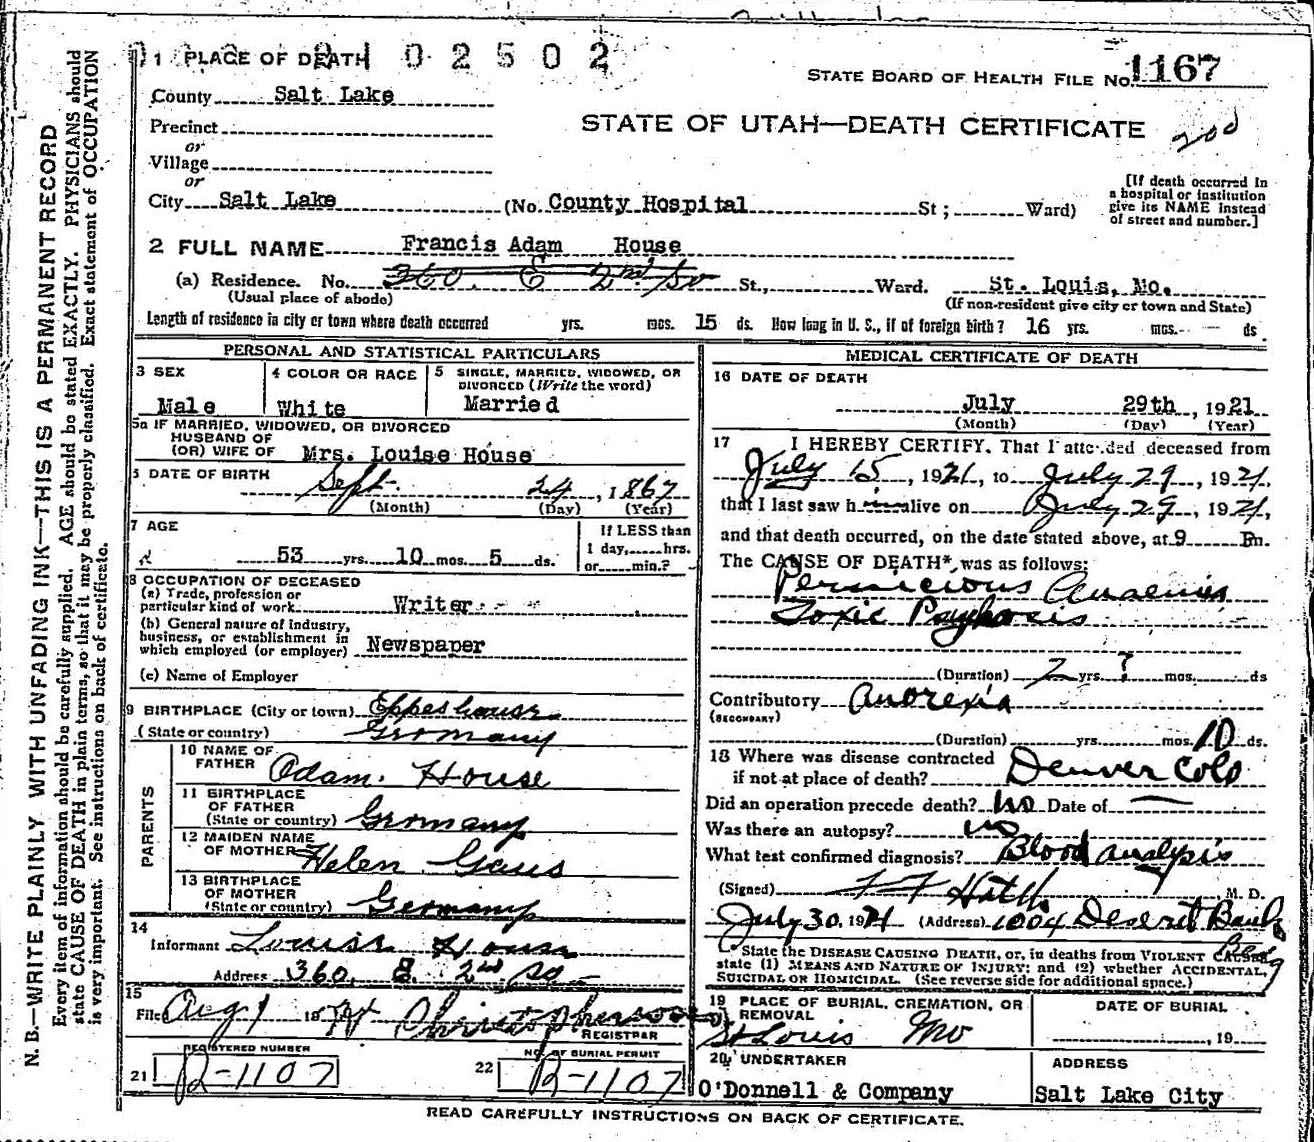 02502
1 PLACE OF DEATH
STATE BOARD OF HEALTH FILE No. 1167
County Salt Lake
Precinct
or
Village
or
STATE OF UTAH—DEATH CERTIFICATE
City Salt Lake (No. County Hospital St; Ward)
[If death occurred in
a hospital or institution
give its NAME instead
of street and number.]
2 FULL NAME Francis Adam House
(a) Residence. No. 360. E 2nd So St., Ward. St. Louis, Mo.
(Usual place of abode) (If non-resident give city or town and State)
Length of residence in city or town where death occurred yrs. mos. 15 ds. How long in U. S., if of foreign birth? 16 yrs. mos. ds
PERSONAL AND STATISTICAL PARTICULARS
3 SEX
Male
4 COLOR OR RACE
White
5 SINGLE, MARRIED, WIDOWED, OR
DIVORCED (Write the word)
Married
5a IF MARRIED, WIDOWED, OR DIVORCED
HUSBAND OF
(OR) WIFE OF Mrs. Louise House
6 DATE OF BIRTH
Sept. 24, 1867
(Month) (Day) (Year)
7 AGE
53 yrs. 10 mos. 5 ds.
If LESS than
1 day, hrs.
or min.?
8 OCCUPATION OF DECEASED
(a) Trade, profession or
particular kind of work Writer
(b) General nature of industry,
business, or establishment in
which employed (or employer) Newspaper
(c) Name of Employer
9 BIRTHPLACE (City or town)
(State or country) Germany
PARENTS
10 NAME OF
FATHER Adam. House
11 BIRTHPLACE
OF FATHER
(State or country) Germany
12 MAIDEN NAME
OF MOTHER Helen Gaus
13 BIRTHPLACE
OF MOTHER
(State or country) Germany
14
Informant Louise House
Address 360. E. 2nd So
15
Filed Aug 1 19
REGISTRAR
REGISTERED NUMBER
21 B-1107
NO. OF BURIAL PERMIT
22 B-1107
MEDICAL CERTIFICATE OF DEATH
16 DATE OF DEATH
July 29th, 1921
(Month) (Day) (Year)
17 I HEREBY CERTIFY. That I attended deceased from
July 15, 1921, to July 29, 1921.
that I last saw him alive on July 29, 1921,
and that death occurred, on the date stated above, at 9 Pm.
The CAUSE OF DEATH* was as follows:
Pernicious Anaemia
Toxic Psychosis
(Duration) 2 yrs ? mos. ds
Contributory Anorexia
(SECONDARY)
(Duration) yrs. mos. 10 ds.
18 Where was disease contracted
if not at place of death? Denver Colo
Did an operation precede death? no Date of —
Was there an autopsy? no
What test confirmed diagnosis? Blood analysis
(Signed) Hatch M. D.
July 30, 1921 (Address) 1004 Deseret Bank
Bldg
State the DISEASE CAUSING DEATH, or, in deaths from VIOLENT CAUSES,
state (1) MEANS AND NATURE OF INJURY; and (2) whether ACCIDENTAL,
SUICIDAL OR HOMICIDAL. (See reverse side for additional space.)
19 PLACE OF BURIAL, CREMATION, OR
REMOVAL
St Louis Mo
DATE OF BURIAL
, 19
20 UNDERTAKER
O'Donnell & Company
ADDRESS
Salt Lake City
READ CAREFULLY INSTRUCTIONS ON BACK OF CERTIFICATE.
N. B.—WRITE PLAINLY WITH UNFADING INK—THIS IS A PERMANENT RECORD
Every item of information should be carefully supplied. AGE should be stated EXACTLY. PHYSICIANS should
state CAUSE OF DEATH in plain terms, so that it may be properly classified. Exact statement of OCCUPATION
is very important. See instructions on back of certificate.